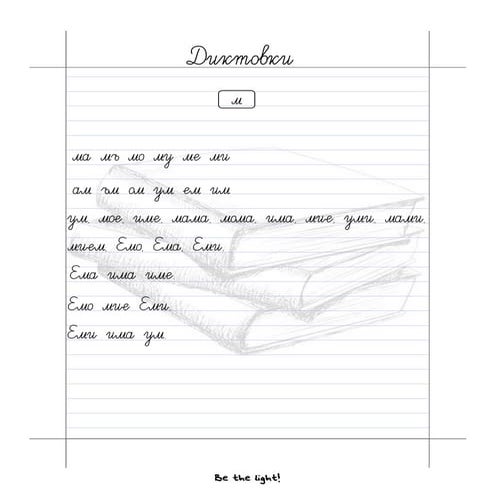 Диктовки
м
ма мъ мо му ме ми
ам ъм ом ум ем им
ум, мое, име, мама, мома, има, мие, уми, мами,
мием, Емо, Ема, Еми.
Ема има име.
Емо мие Еми.
Еми има ум.
Be the light!